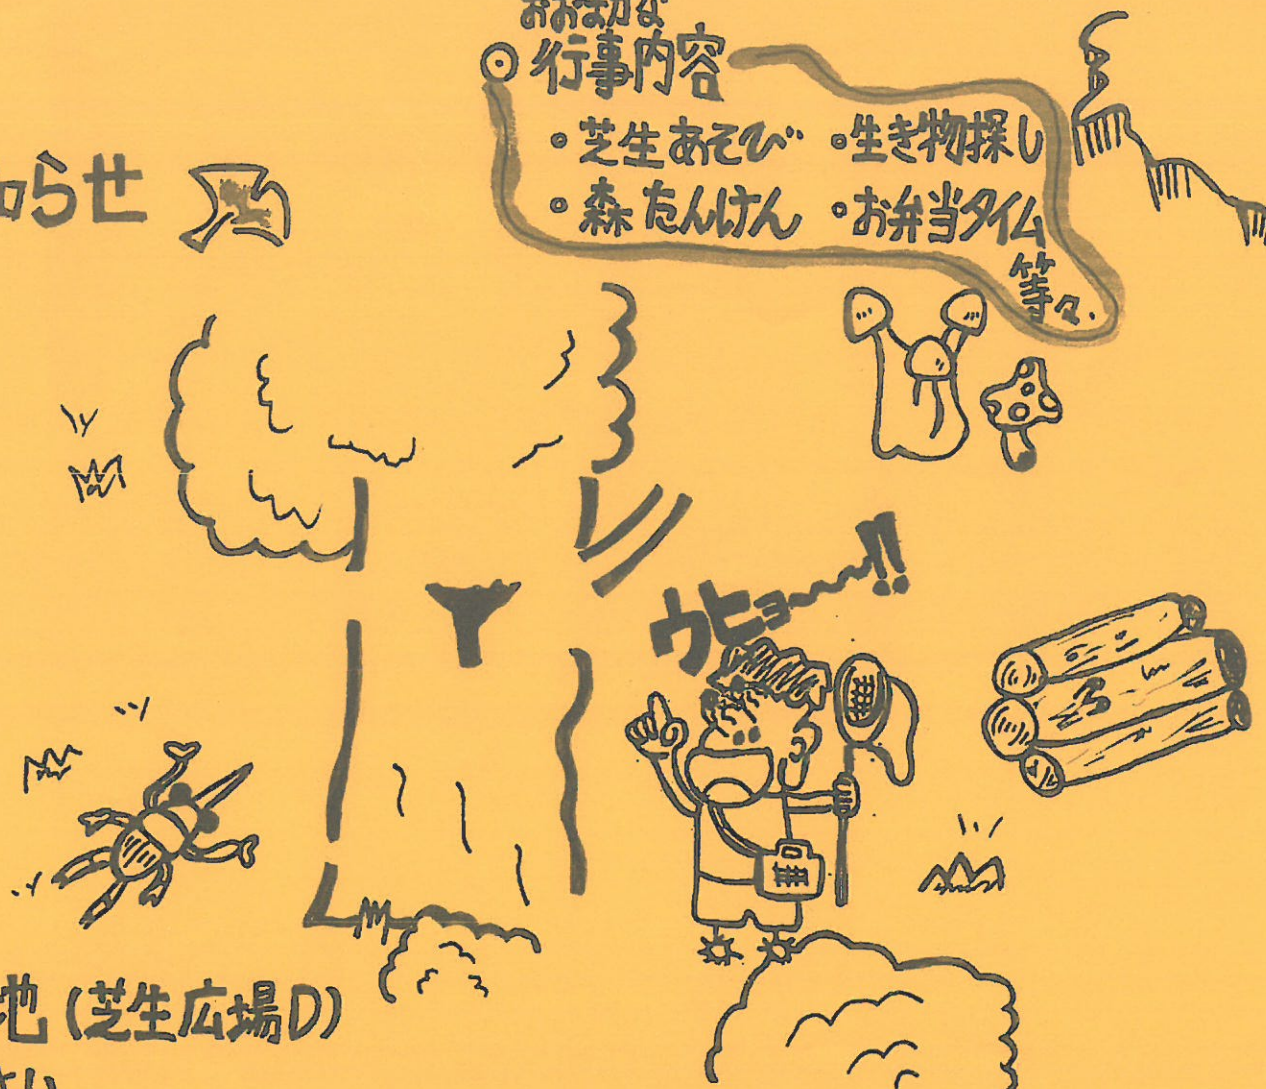 おおまかな
◎行事内容
・芝生あそび ・生き物探し
・森たんけん ・お弁当タイム
等々.
らせ
ウヒョ〜〜!!
地(芝生広場D)